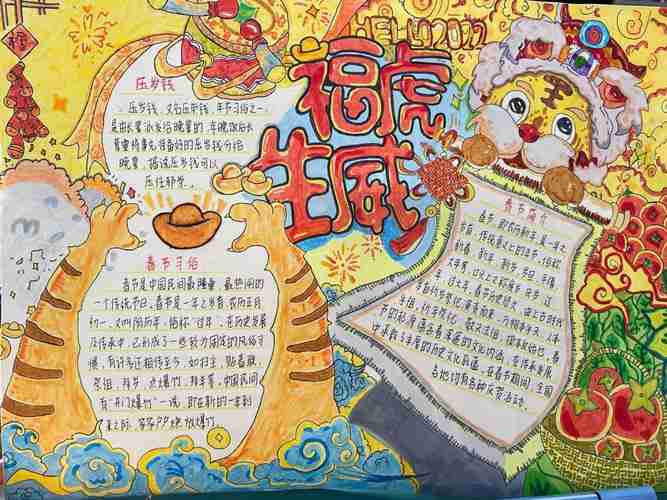 HELLO 2022
福虎
生威
压岁钱
压岁钱,又名压祟钱,年节习俗之一,
是由长辈派发给晚辈的,年晚饭后长
辈要将事先准备好的压岁钱分给
晚辈,据说压岁钱可以
压住邪祟。
春节习俗
春节是中国民间最隆重、最热闹的
一个传统节日。春节是一年之岁首,农历正月
初一,又叫阴历年,俗称“过年”。在历史发展
及传承中,已形成了一些较为固定的风俗习
惯,有许多还相传至今,如扫尘、贴春联、
祭祖、拜岁、点爆竹、拜年等。中国民间
有“开门爆竹”一说,即在新的一年到
来之际,家家户户燃放爆竹。
春节简介
春节,即农历新年,是一年之
岁首、传统意义上的年节。俗称
新春、新年、新岁、岁旦、年禧、
大年等,口头上又称度岁、庆岁、过
年、过大年。春节历史悠久,由上古时代
岁首祈岁祭祀演变而来。万物本乎天、人本
乎祖,祈年祭祀、敬天法祖,报本反始也。春
节的起源蕴含着深邃的文化内涵,在传承发展
中承载了丰厚的历史文化底蕴。在春节期间,全国
各地均有各种庆贺活动。